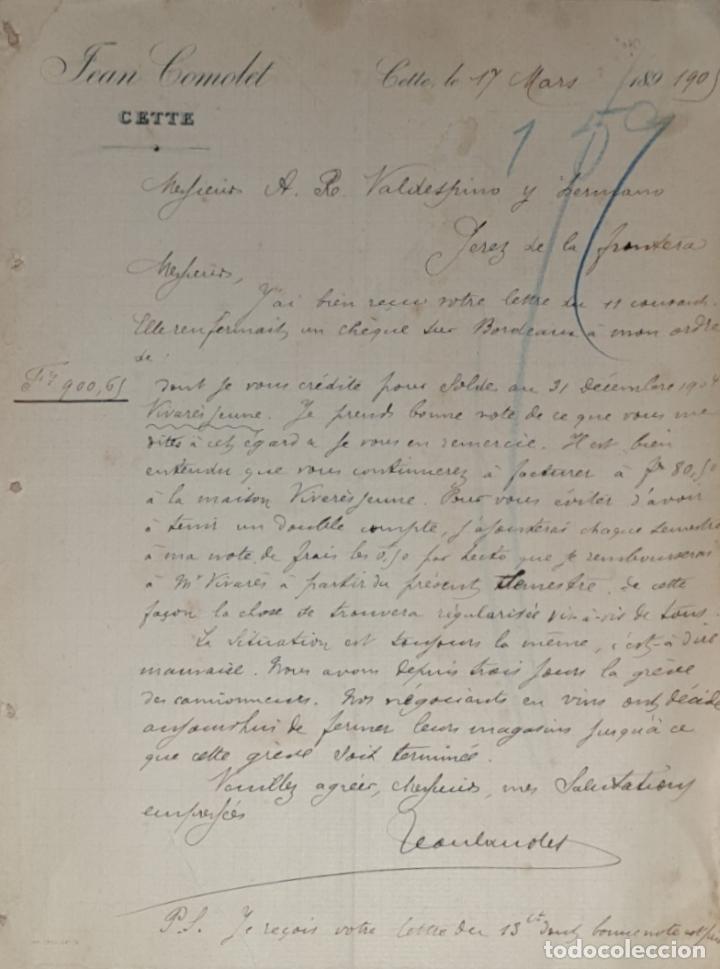 Jean Comolet
CETTE
Cette, le 17 Mars 189 1905
159
Messieurs A. R. Valdespino y Hermano
Jerez de la frontera
Messieurs,
J'ai bien reçu votre lettre du 11 courant.
Elle renfermait un chèque sur Bordeaux à mon ordre
de :
Frs 900,65
dont je vous crédite pour Solde au 31 décembre 1904
Vivarès jeune. Je prends bonne note de ce que vous me
dites à cet égard & je vous en remercie. Il est bien
entendu que vous continuerez à facturer à fr 80,50
à la maison Vivarès jeune. Pour vous éviter d'avoir
à tenir un double compte, j'ajouterai chaque semestre
à ma note de frais les 0,50 par hecto que je rembourserai
à Mr Vivarès à partir du présent semestre. de cette
façon la chose se trouvera régularisée vis-à-vis de tous.
La situation est toujours la même, c'est-à-dire
mauvaise. Nous avons depuis trois jours la grève
des camionneurs. Nos négociants en vins ont décidé
aujourd'hui de fermer leurs magasins jusqu'à ce
que cette grève soit terminée.
Veuillez agréer, Messieurs, mes Salutations
empressées
P.S. Je reçois votre lettre du 13 ct dont bonne note
todocoleccion